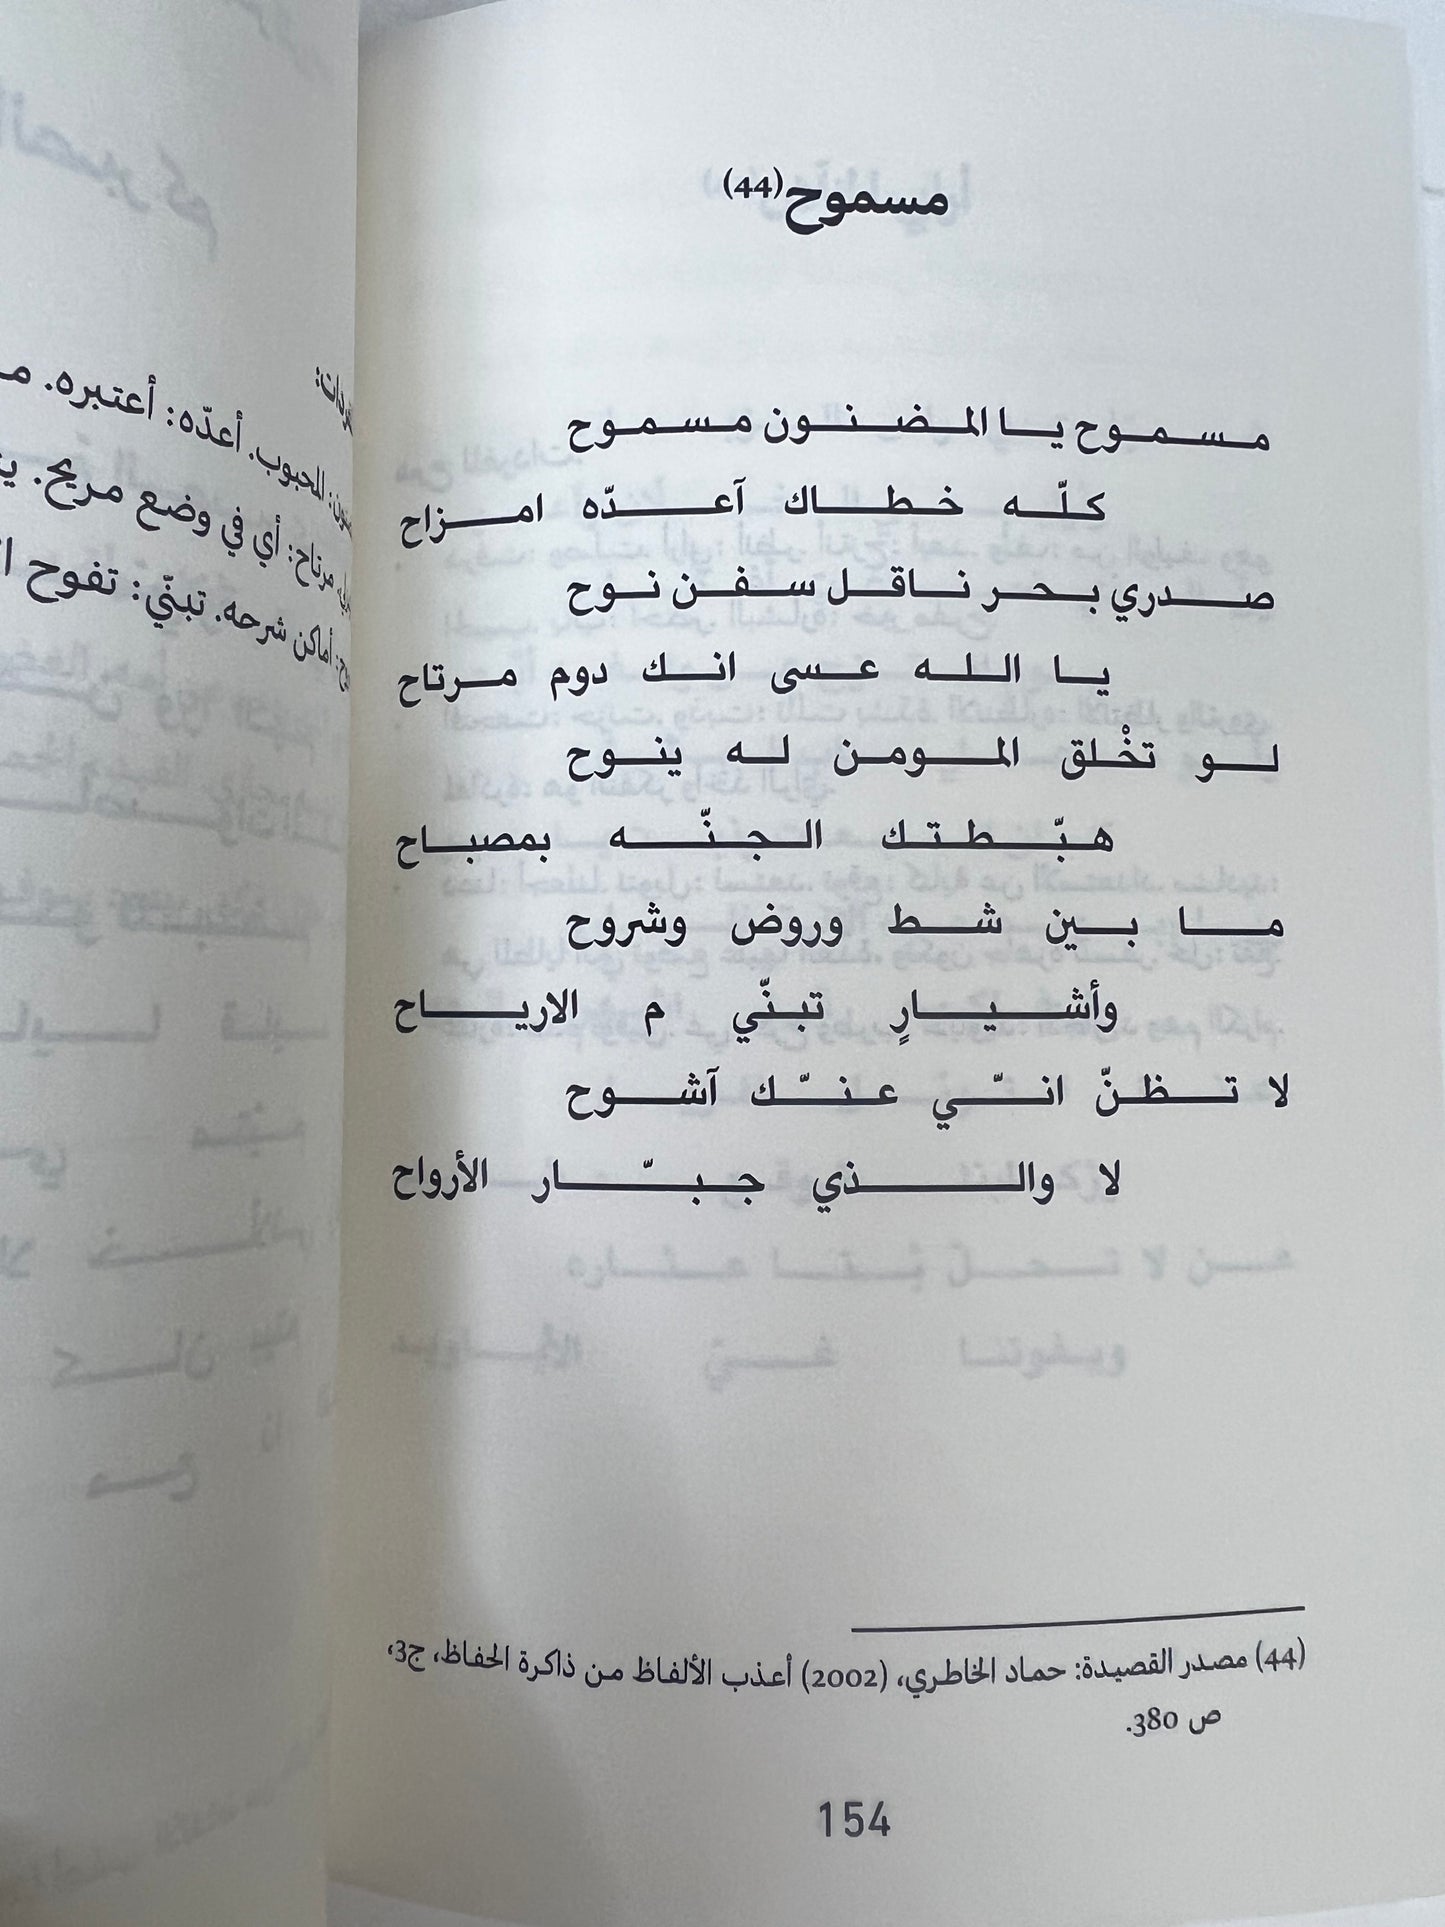 مسموح(44)
مسموح يا المضنون مسموح
كلّه خطاك آعدّه امزاح
صدري بحر ناقل سفن نوح
يا الله عسى انك دوم مرتاح
لو تخْلق المومن له ينوح
هبّطتك الجنّه بمصباح
ما بين شط وروض وشروح
وأشيارٍ تبنّي م الارياح
لا تظنّ انّي عنّك آشوح
لا والذي جبّار الأرواح
(44) مصدر القصيدة: حماد الخاطري، (2002) أعذب الألفاظ من ذاكرة الحفاظ، ج3،
ص 380.
154
الصبر كم
المحبوب. أعدّه: أعتبره.
مرتاح: أي في وضع مريح.
أماكن شرحه. تبنّي: تفوح